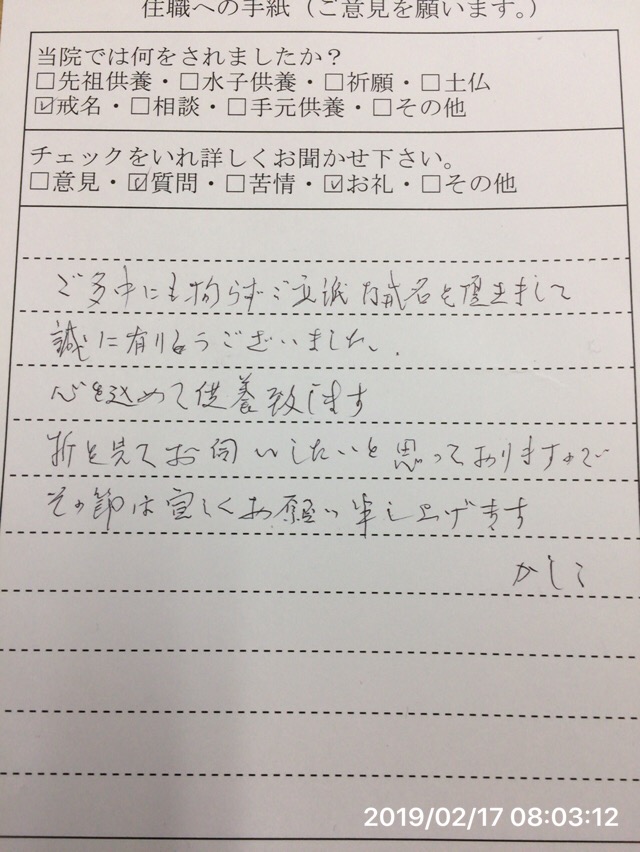 住職への手紙（ご意見を願います。）
当院では何をされましたか？
□先祖供養・□水子供養・□祈願・□土仏
☑戒名・□相談・□手元供養・□その他
チェックをいれ詳しくお聞かせ下さい。
□意見・☑質問・□苦情・☑お礼・□その他
ご多中にも拘らずご立派な戒名を頂きまして
誠に有りがとうございました。
心を込めて供養致します
折を見てお伺いしたいと思っておりますので
その節は宜しくお願い申し上げます
かしこ
2019/02/17 08:03:12